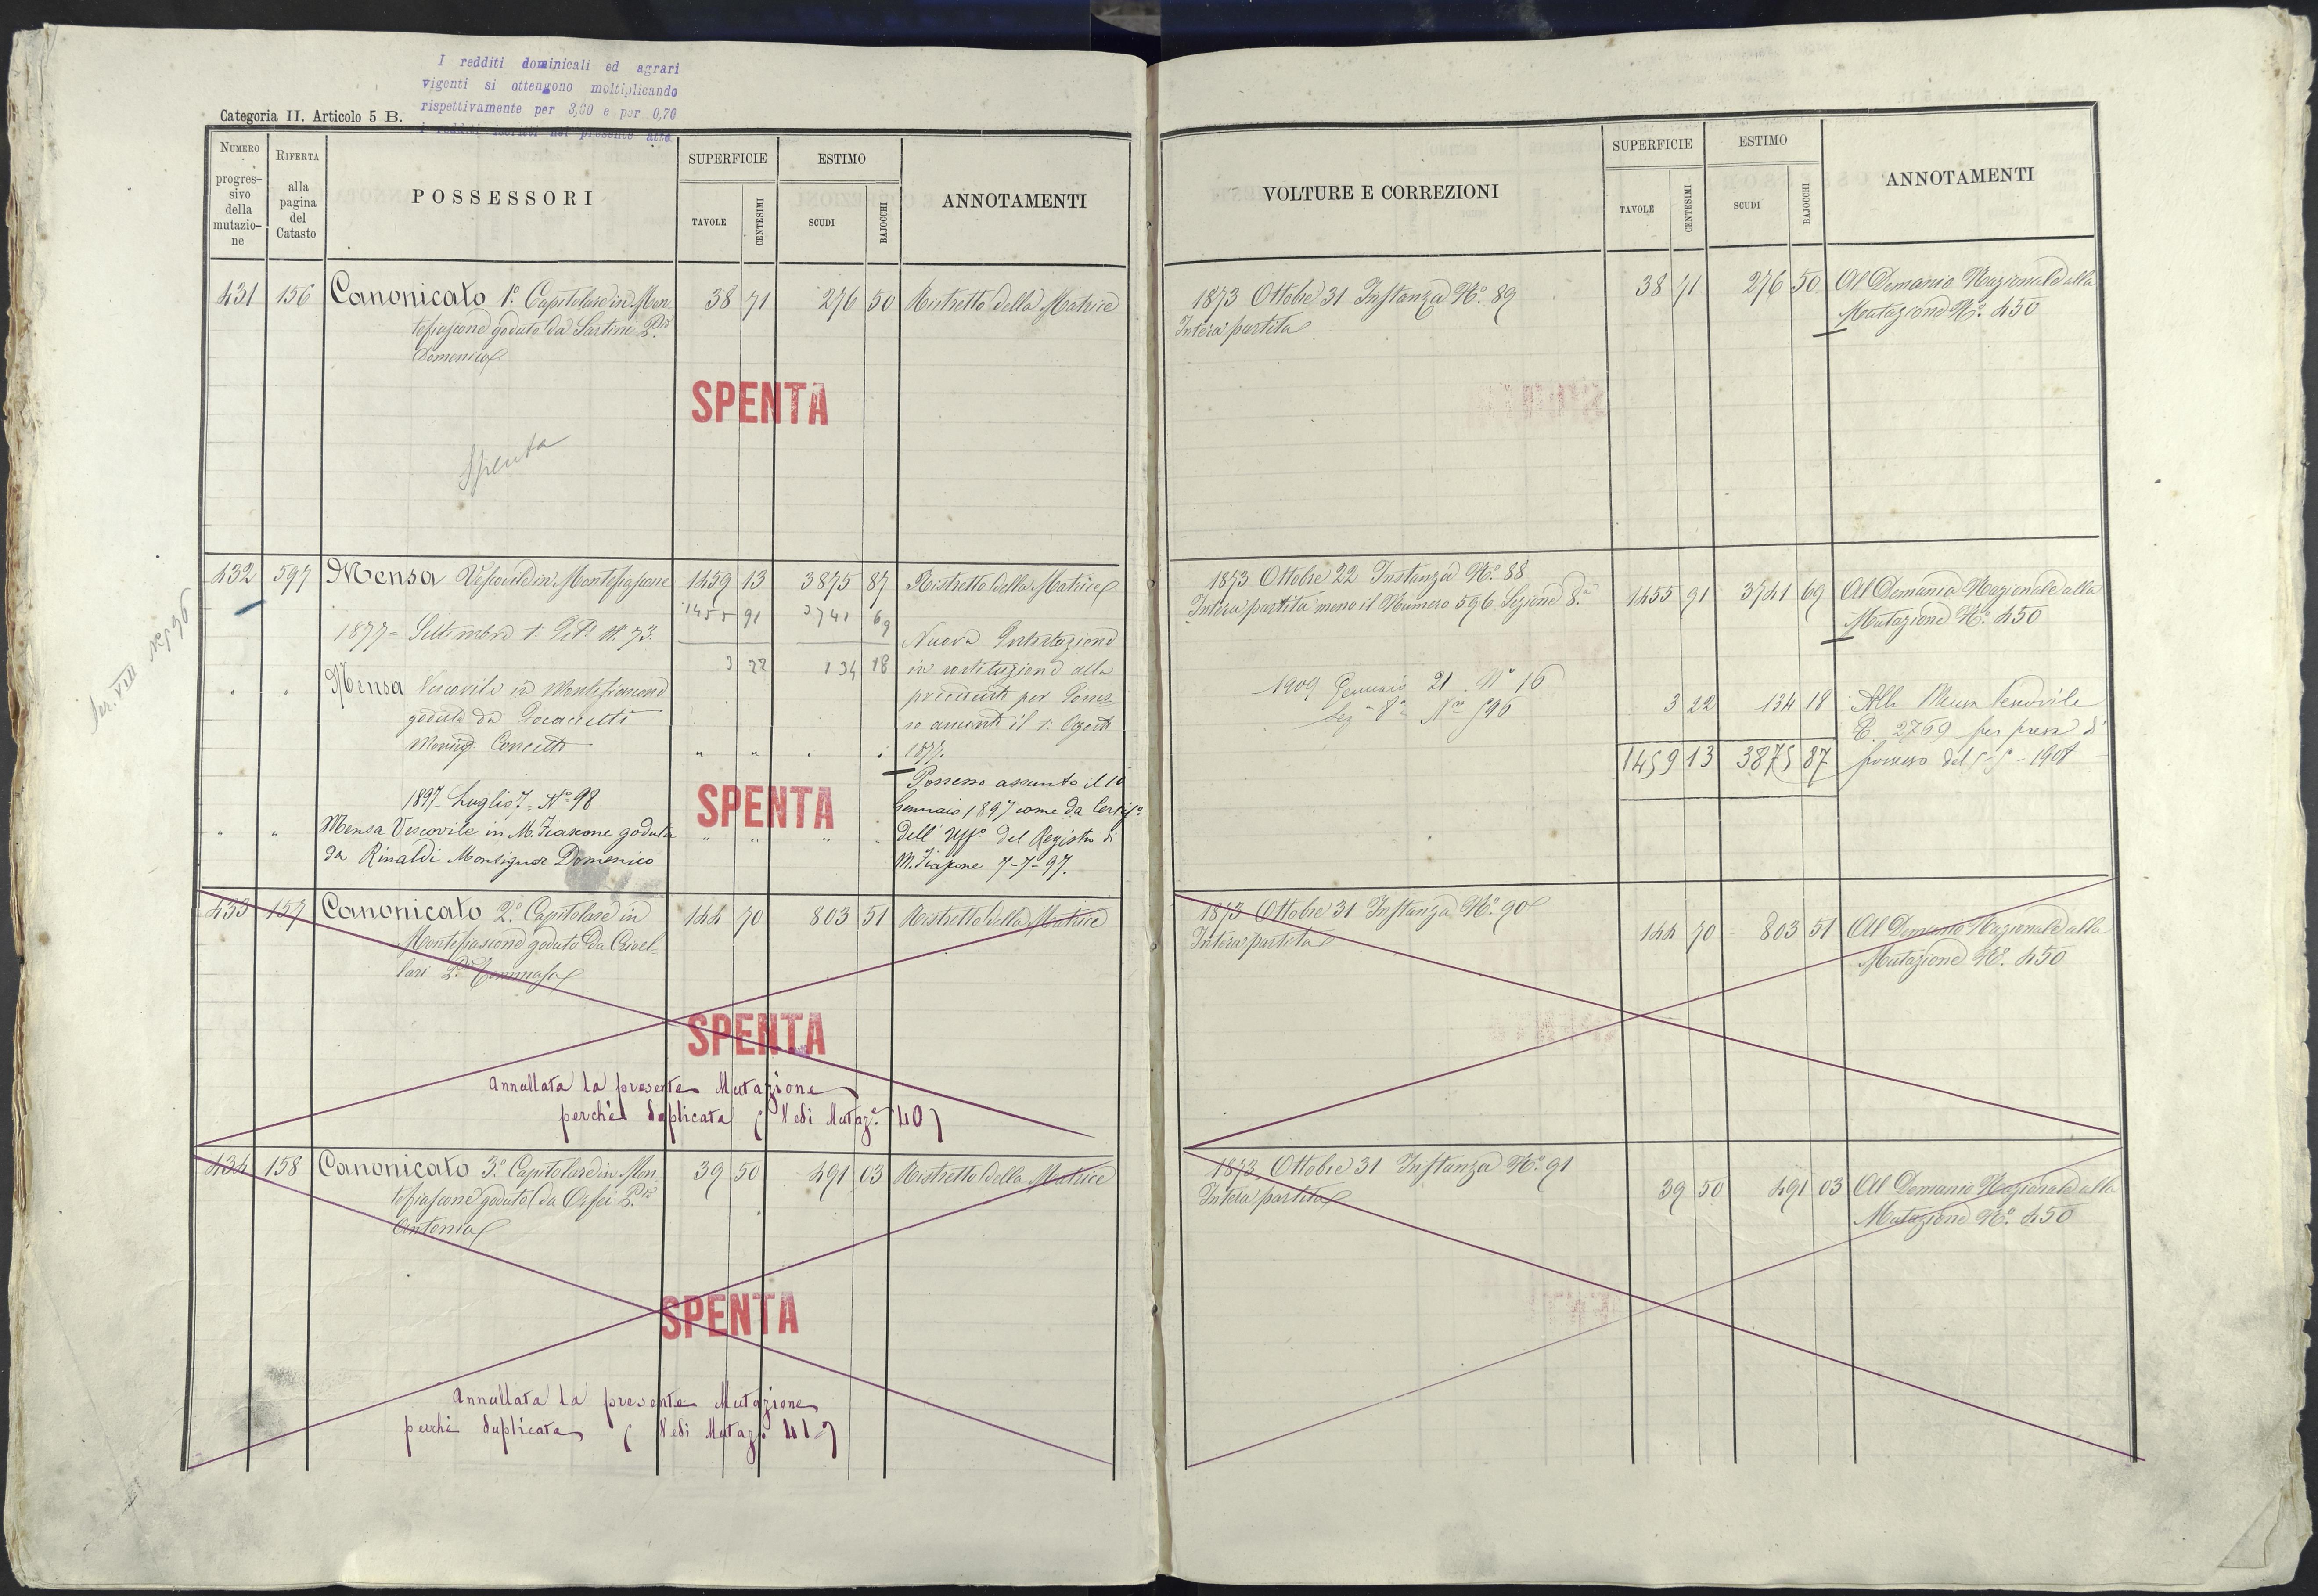 I redditi dominicali ed agrari
vigenti si ottengono moltiplicando
rispettivamente per 3,00 e per 0,70
i redditi iscritti nel presente atto
Categoria II. Articolo 5 B.
NUMERO progressivo della mutazione
RIFERTA alla pagina del Catasto
POSSESSORI
SUPERFICIE
TAVOLE
CENTESIMI
ESTIMO
SCUDI
BAJOCCHI
ANNOTAMENTI
431 156 Canonicato 1º Capitolare in Mon- 38 71 276 50 Ristretto della Matrice
tefiascone goduto da Sartini
Domenico
SPENTA
Spenta
Sez. VIII Nº 596
432 597 Mensa Vescovile in Montefiascone 1459 13 3875 87 Ristretto della Matrice
1455 91 3741 69
1877 = Settembre 1. N. 73.
3 22 134 18
Nuova Intestazione
in sostituzione alla
precedente per Posses-
so assunto il 1. Agosto
1877.
Mensa Vescovile in Montefiascone
goduta da
Monsig. Concetto
1897 Luglio 7 Nº 98
Mensa Vescovile in M. Fiascone goduta
da Rinaldi Monsignor Domenico
SPENTA
Possesso assunto il 10
Gennaio 1897 come da Certifº
dell' Uffº del Registro di
M. Fiascone 7-7-97.
433 157 Canonicato 2º Capitolare in 144 70 803 51 Ristretto della Matrice
Montefiascone goduto da Crivel-
lari Tommaso
SPENTA
Annullata la presente Mutazione
perchè duplicata (Vedi Mutaz. 40)
434 158 Canonicato 3º Capitolare in Mon- 39 50 491 03 Ristretto della Matrice
tefiascone goduto da Orfei
Antonio
SPENTA
Annullata la presente Mutazione
perchè duplicata (Vedi Mutaz. 41)
VOLTURE E CORREZIONI
SUPERFICIE
TAVOLE
CENTESIMI
ESTIMO
SCUDI
BAJOCCHI
ANNOTAMENTI
1873 Ottobre 31 Instanza Nº 89 38 71 276 50 Al Demanio Nazionale alla
Intera partita Mutazione Nº. 450
1873 Ottobre 22 Instanza Nº 88
Intera partita meno il Numero 596 Sezione 8.ª 1455 91 3741 69 Al Demanio Nazionale alla
Mutazione Nº. 450
1909 Gennaio 21 Nº 16
Sezº 8ª Nº 596 3 22 134 18 Alla Mensa Vescovile
2769 per presa di
1459 13 3875 87 possesso del 5-5-1908
1873 Ottobre 31 Instanza Nº. 90
Intera partita 144 70 803 51 Al Demanio Nazionale alla
Mutazione Nº. 450
1873 Ottobre 31 Instanza Nº. 91
Intera partita 39 50 491 03 Al Demanio Nazionale alla
Mutazione Nº. 450